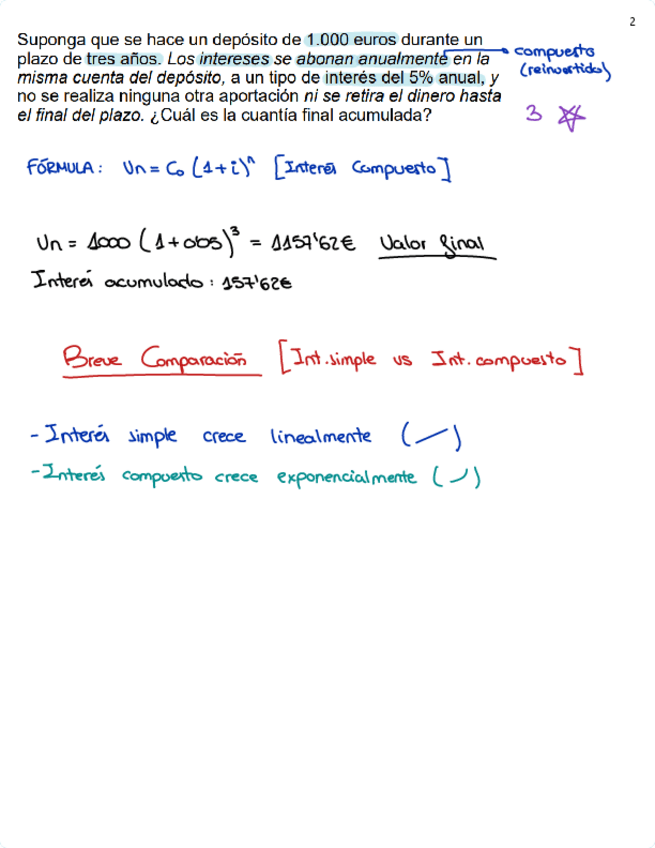 2
Suponga que se hace un depósito de 1.000 euros durante un
plazo de tres años. Los intereses se abonan anualmente en la
misma cuenta del depósito, a un tipo de interés del 5% anual, y
no se realiza ninguna otra aportación ni se retira el dinero hasta
el final del plazo. ¿Cuál es la cuantía final acumulada?
compuesto
(reinvertido)
3
FÓRMULA: Un = Co (1+i)^n [Interés Compuesto]
Un = 1000 (1+0'05)^3 = 1157'62€ Valor final
Interés acumulado: 157'62€
Breve Comparación [Int. simple vs Int. compuesto]
- Interés simple crece linealmente ( )
- Interés compuesto crece exponencialmente ( )